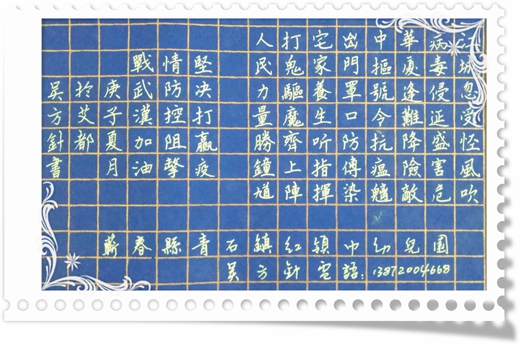 江城忽受怪風吹
病毒侵延盛害危
華夏逢難降險敵
中樞號令抗瘟魑
出門罩口防傳染
宅家養生听指揮
打鬼驅魔齊上陣
人民力量勝鐘馗
堅决打贏疫
情防控阻擊
戰武漢加油
庚子夏月
於艾都
吴方針書
蘄春縣青石鎮紅領巾幼兒園
吴方針電話:13872004668